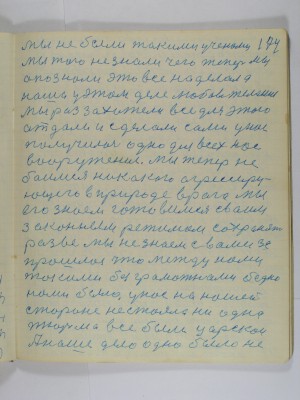 мы не были такими учеными 174
мы того не знали чего теперь мы
опознали это все наделал
наша у этом деле любовь
мы раз захотели все для этого
отдали и сделали сами у нас
получилося одно для всех нас
вооружения. мы тепер не
боимся никакого агрессиру-
ющего в природе врага мы
его знаем готовимся своим
законным режимом сохранят
разве мы не знаем с вами за
прошлое что между нами
такими безграмотными бедно
нами было, у нас на нашей
стороне не стояла ни одна
тюрьма все были царской
А наше дело одно было не